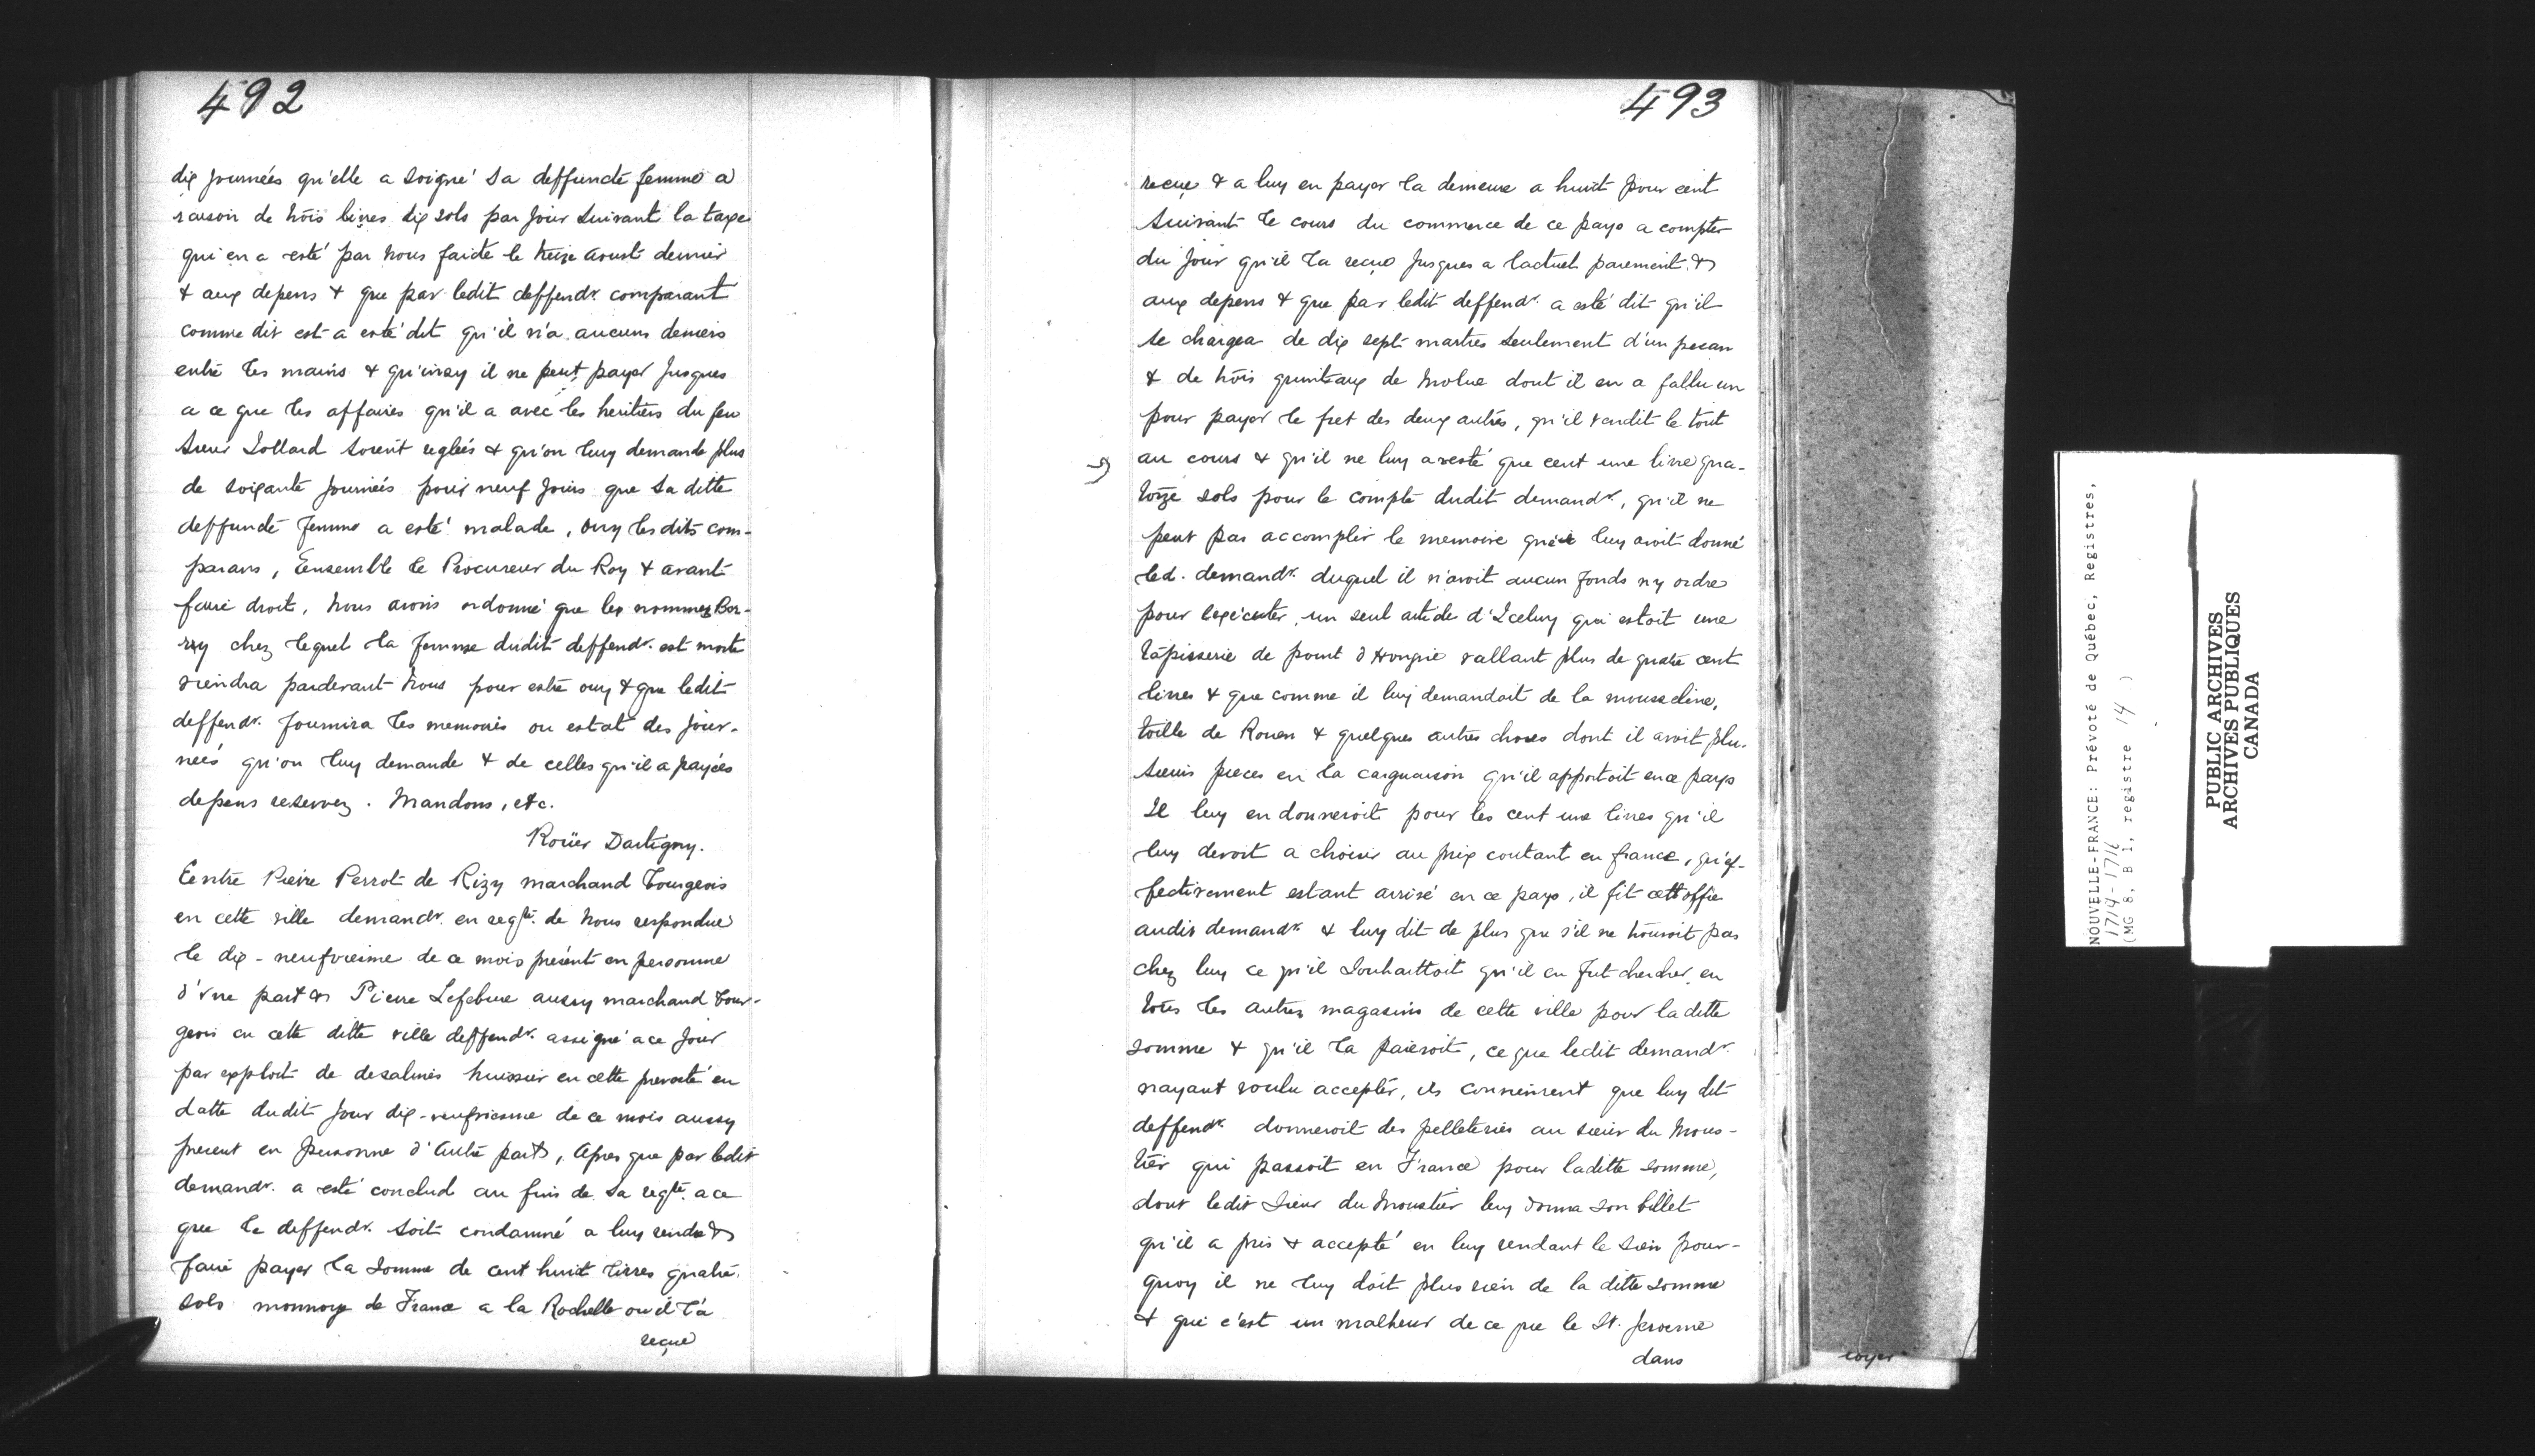 492
dix journées qu'elle a soigné sa deffuncte femme a
raison de trois livres dix sols par jour suivant la taxe
qui en a esté par nous faicte le treize aoust dernier
& aux depens & que par ledit deffendr. comparant
comme dit est a esté dit qu'il n'a aucuns deniers
entre les mains & qu'insy il ne peut payer jusques
a ce que les affaires qu'il a avec les heritiers du feu
sieur Sollard soient reglées & qu'on luy demande plus
de soixante journées pour neuf jours que sa ditte
deffuncte femme a esté malade, ouy les dits com-
parans, Eensemble le Procureur du Roy & avant
faire droit, nous avons ordonné que les nommez Ber-
rry chez lequel la femme dudit deffendr. est morte
viendra pardevant nous pour estre ouy & que ledit
deffendr. fournira les memoires ou estat des jour-
nées qu'on luy demande & de celles qu'il a payées
depens reservez. Mandons, etc.
Roüer Dartigny.
Eentre Pierre Perrot de Rizy marchand bourgeois
en cette ville demandr. en reqte. de nous respondue
le dix-neufvieime de ce mois présent en personne
d'vne part & Pierre Lefebvre aussy marchand bour-
geois en cette ditte ville deffendr. assigné a ce jour
par exploit de desalines huissier en cette prevosté en
datte dudit jour dix-neufviesme de ce mois aussy
present en personne d'autre part, Apres que par ledit
demandr. a esté conclud au fins de sa reqte. a ce
que le deffendr. soit condamné a luy rendre &
faire payer la somme de cent huit livres quatre
sols monnoye de France a la Rochelle ou il l'a
reçue
493
reçue & a luy en payer la demeure a huict pour cent
suivant le cours du commerce de ce pays a compter
du jour qu'il la reçue jusques a lactuel paiement &
aux depens & que par ledit deffendr. a esté dit qu'il
se chargea de dix sept martres seulement d'un pecan
& de trois quinteaux de molue dont il en a fallu un
pour payer le fret des deux autres, qu'il vendit le tout
au cours & qu'il ne luy a resté que cent une livre qua-
torze sols pour le compte dudit demandr., qu'il ne
peut pas accomplir le memoire que luy avoit donné
led. demandr. duquel il n'avoit aucun fonds ny ordre
pour lexécuter, un seul article d'Iceluy qui estoit une
tapisserie de point d'Hongrie vallant plus de quatre cent
livres & que comme il luy demandoit de la mousseline,
toille de Rouen & quelques autres choses dont il avoit plu-
sieurs pieces en la carguaison qu'il apportoit en ce pays
Il luy en donneroit pour les cent une livres qu'il
luy devoit a choisir au prix coutant en france, qu'ef-
fectivement estant arrivé en ce pays, il fit cett offre
audit demandr. & luy dit de plus que s'il ne trouvoit pas
chez luy ce qu'il souhaittoit qu'il en fut chercher en
tous les autres magasins de cette ville pour la ditte
somme & qu'il la paieroit, ce que ledit demandr.
nayant voulu accepter, ils convinrent que luy dit
deffendr. donneroit des pelleteries au sieur du Mous-
tier qui passoit en France pour laditte somme,
dont ledit sieur du Moustier luy donna son billet
qu'il a pris & accepté en luy rendant le sien pour-
quoy il ne luy doit plus rien de la ditte somme
& que c'est un malheur de ce que le St. Jerome
dans
NOUVELLE-FRANCE: Prévoté de Québec, Registres,
1714-1716
(MG 8, B 1, registre 14 )
PUBLIC ARCHIVES
ARCHIVES PUBLIQUES
CANADA